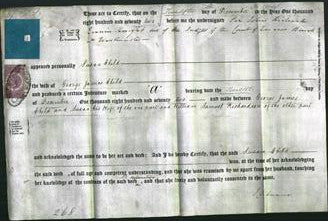 These are to Certify, that on the Twelfth day of December in the year one thousand
eight hundred and seventy two before me the undersigned Sir
one of the Judges of the Court of Queen's Bench
at Westminster
appeared personally Susan Child
the wife of George James Child
and produced a certain Indenture marked "A" bearing date the Twelfth day
of December One thousand eight hundred and seventy two and made between George James
Child and Susan his Wife of the one part and William Samuel Richardson of the other part
and acknowledged the same to be her act and deed: And I do hereby Certify, that the said Susan Child
was, at the time of her acknowledging
the said deed, of full age and competent understanding, and that she was examined by me apart from her husband, touching
her knowledge of the contents of the said deed and that she freely and voluntarily consented to the same.
268